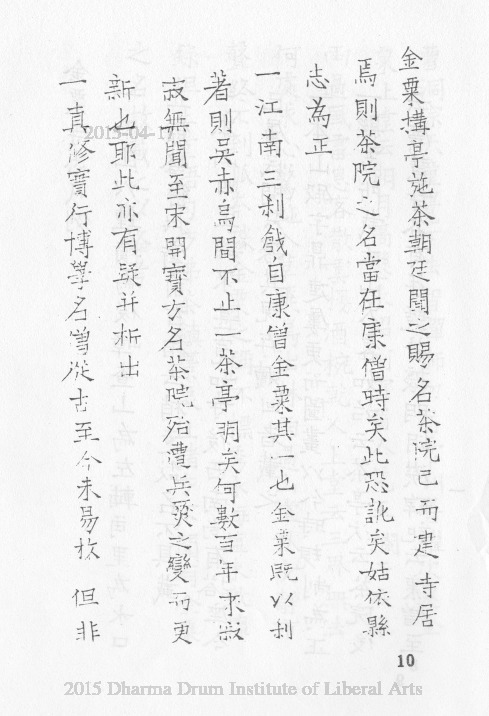 金粟搆亭施茶朝廷聞之賜名茶院已而建寺居
焉則茶院之名當在康僧時矣此恐訛矣姑依縣
志為正
一江南三刹戧自康僧金粟其一也金粟既以刹
著則吳赤烏間不止一茶亭明矣何數百年來寂
寂無聞至宋開寶方名茶院殆遭兵燹之變而更
新也耶此亦有疑并析出
一真修實行博學名僧從古至今未易枚 但非
2015-04-17
10
2015 Dharma Drum Institute of Liberal Arts